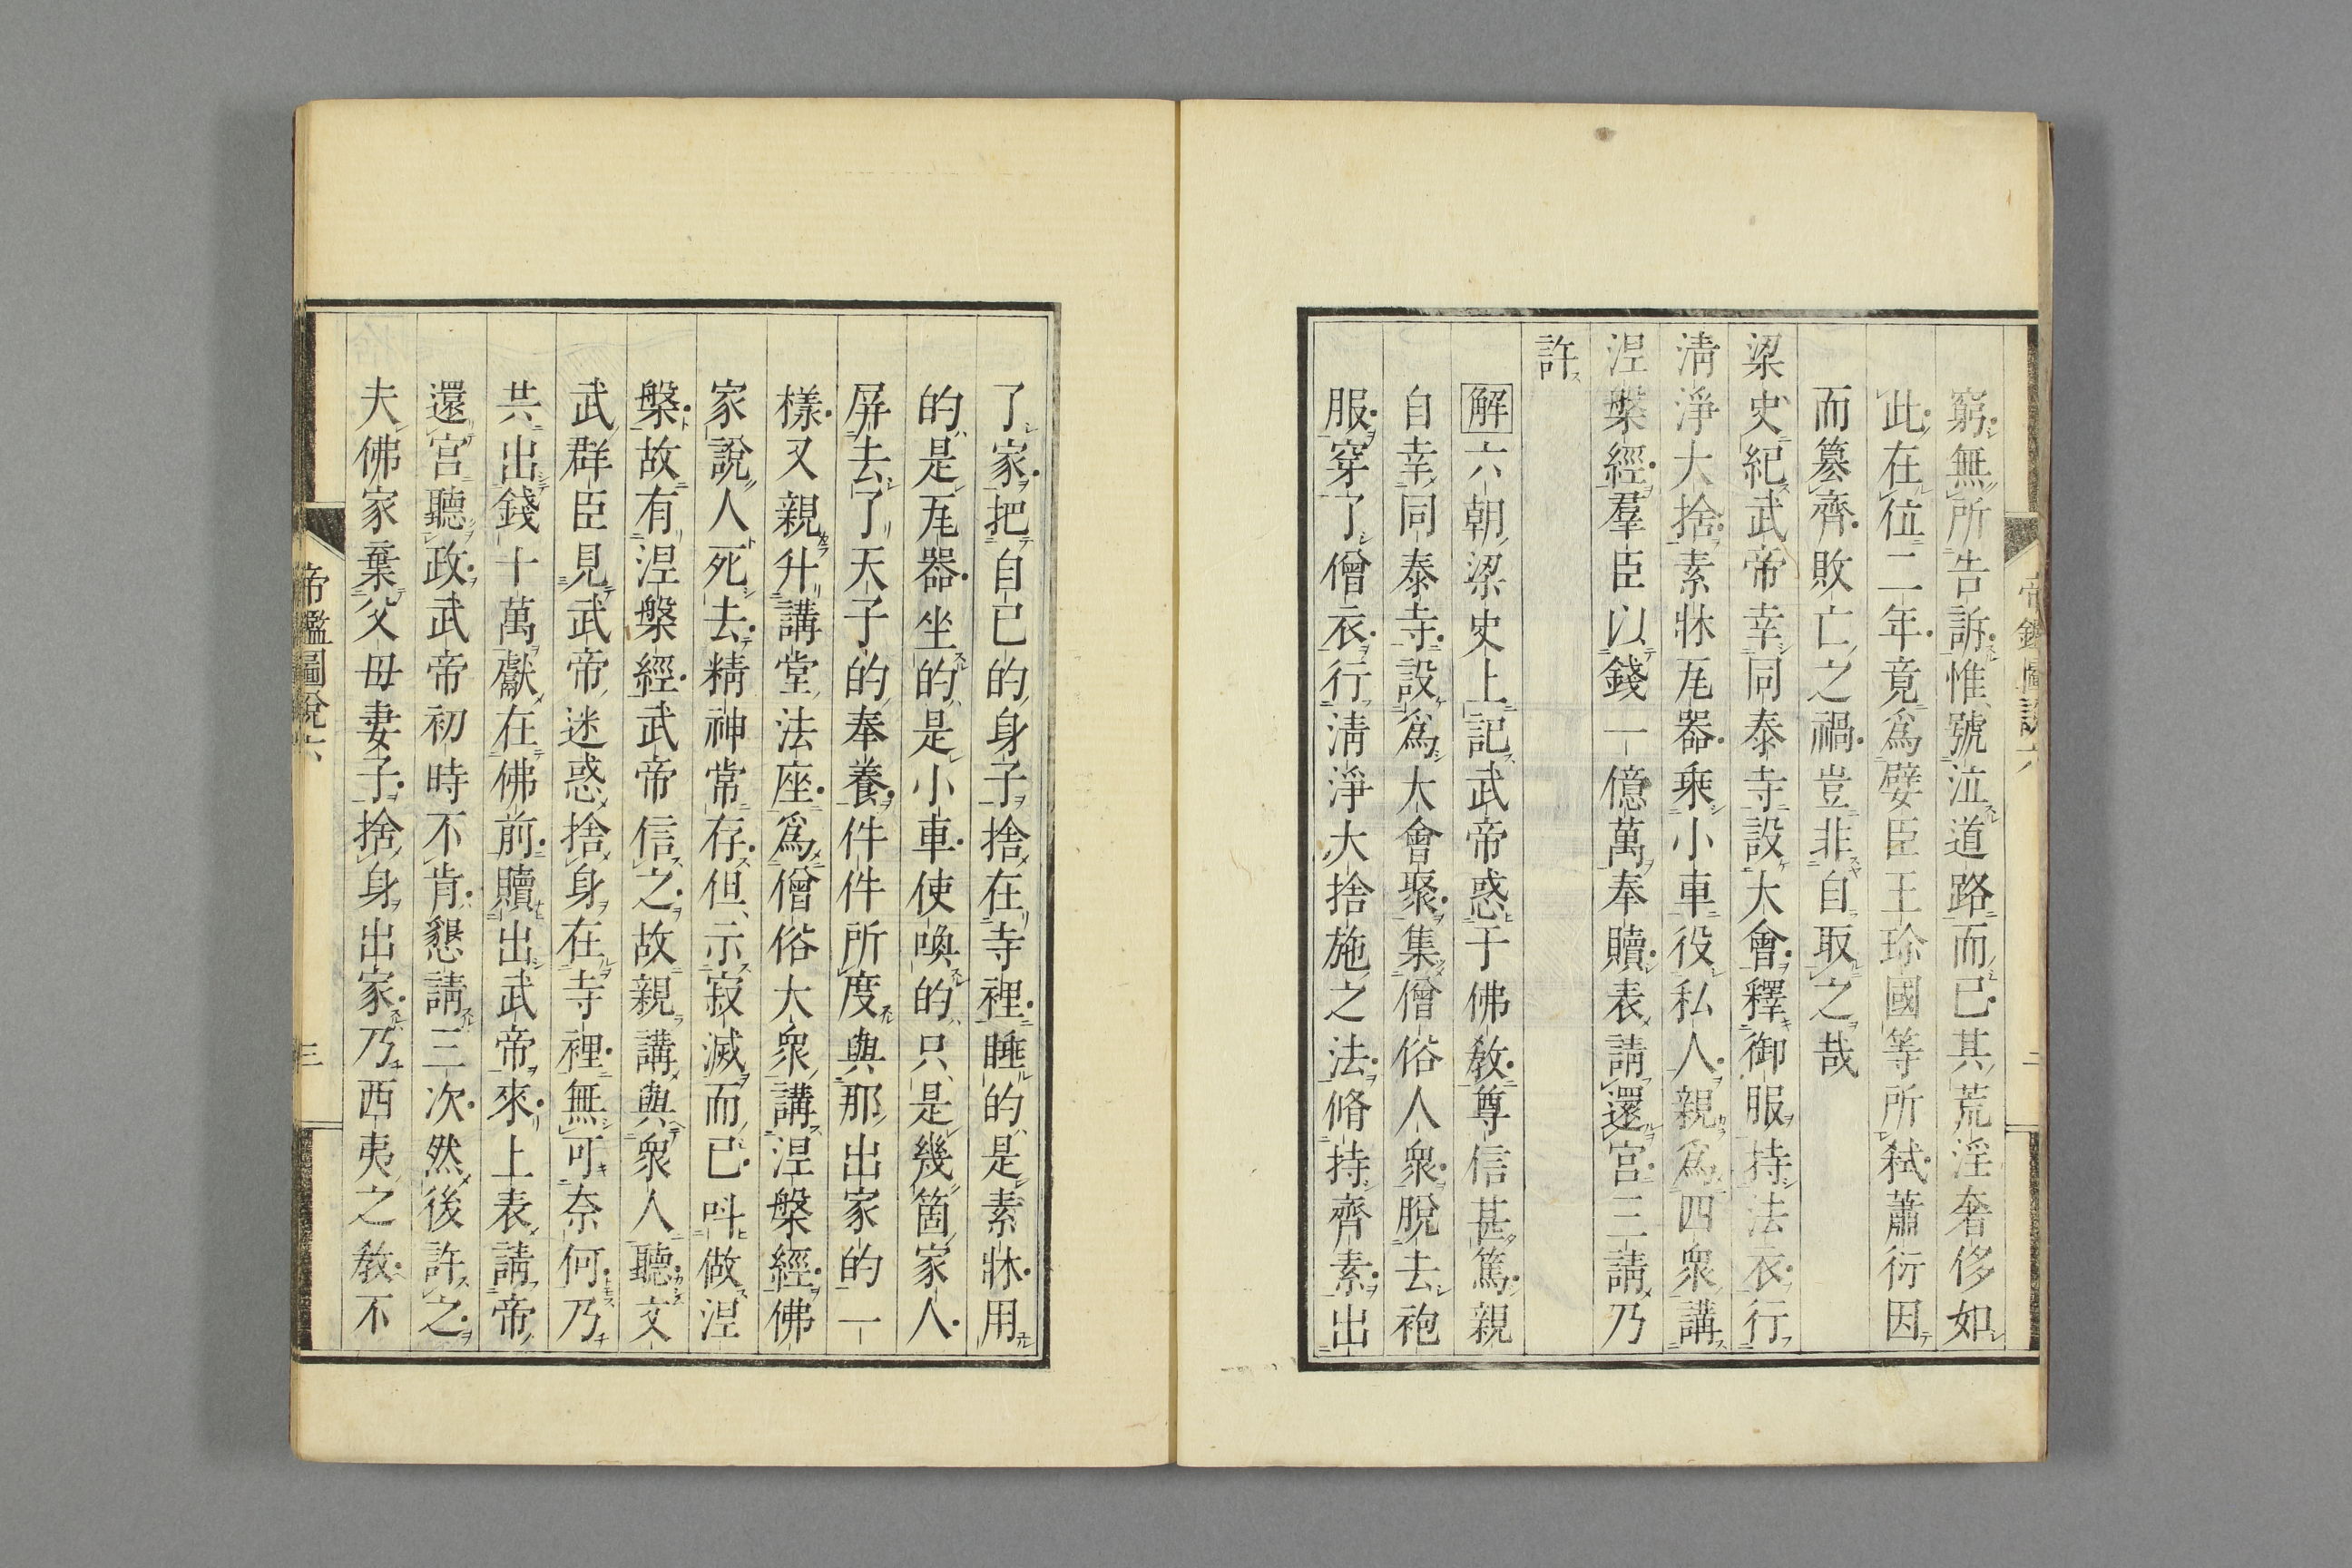 窮無所告訴惟號泣道路而已其荒淫奢侈如
此在位二年竟爲嬖臣王珍國等所弑蕭衍因
而簒齊敗亡之禍豈非自取之哉
梁史紀武帝幸同泰寺設大會釋御服持法衣行
清淨大捨素牀瓦器乘小車役私人親爲四衆講
涅槃經羣臣以錢一億萬奉贖表請還宮三請乃
許
解六朝梁史上記武帝惑于佛教尊信甚篤親
自幸同泰寺設爲大會聚集僧俗人衆脫去袍
服穿了僧衣行淸淨大捨施之法脩持齊素出
帝鑑圖說六
二
了家把自已的身子捨在寺裡睡的是素牀用
的是瓦器坐的是小車使喚的只是幾箇家人
屏去了天子的奉養件件所度與那出家的一
樣又親升講堂法座爲僧俗大衆講涅槃經佛
家說人死去精神常存但示寂滅而已呌做涅
槃故有涅槃經武帝信之故親講與衆人聽文
武群臣見武帝迷惑捨身在寺裡無可奈何乃
共出錢十萬獻在佛前贖出武帝來上表請帝
還宮聽政武帝初時不肯懇請三次然後許之
夫佛家棄父母妻子捨身出家乃西夷之教不
帝鑑圖說六
三